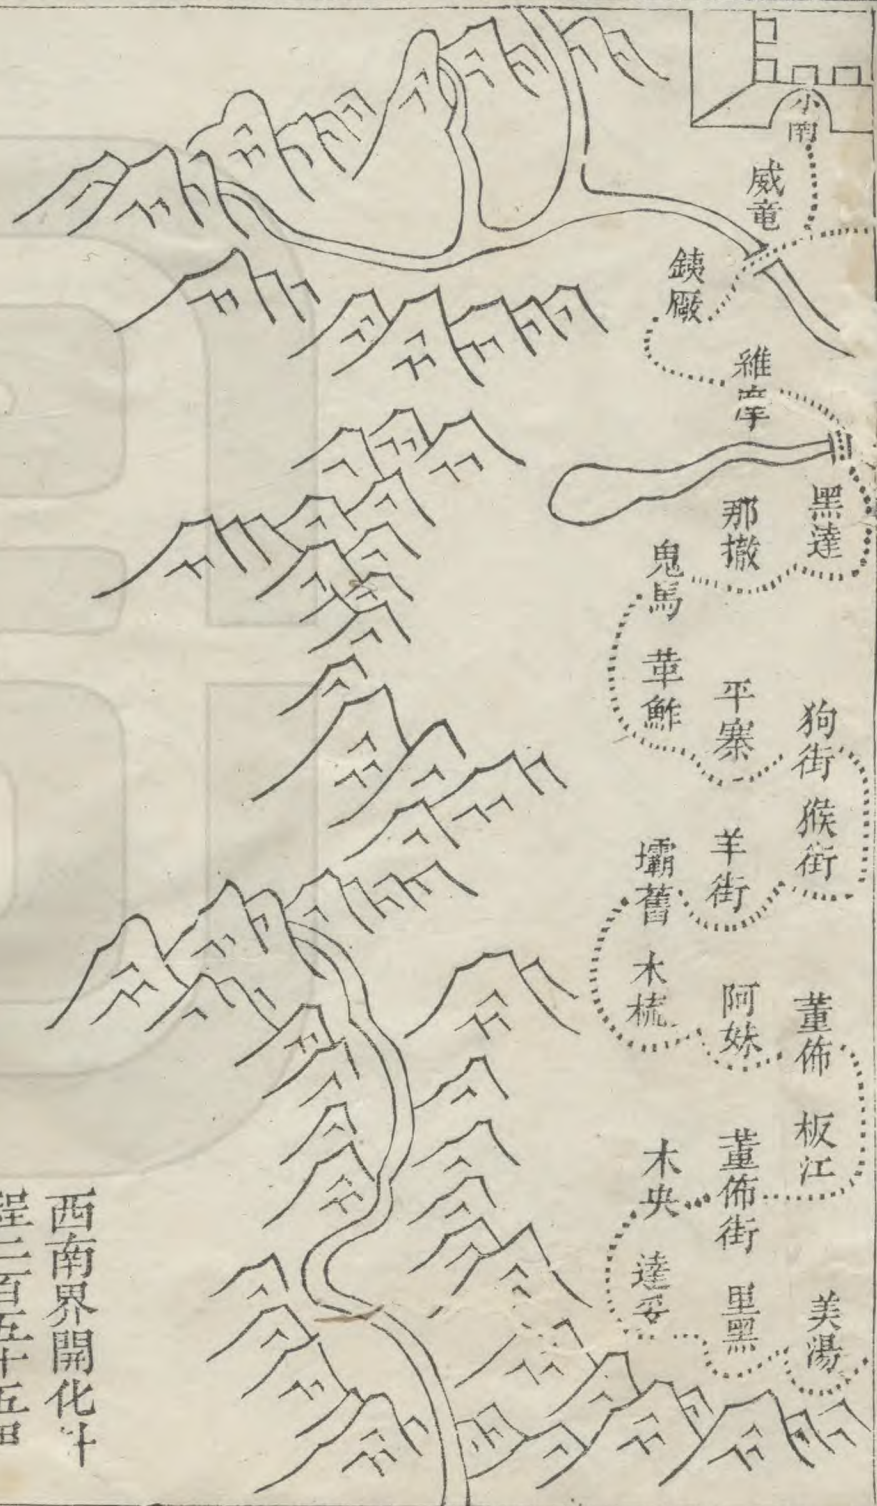 小南
威竜
銕厰
維摩
黑達
那撤
鬼馬
革鮓
平寨
狗街
猴街
羊街
壩舊
木梳
阿妹
董佈
板江
董佈街
木央
達妥
里黑
美湯
西南界開化計
程二百五十五里